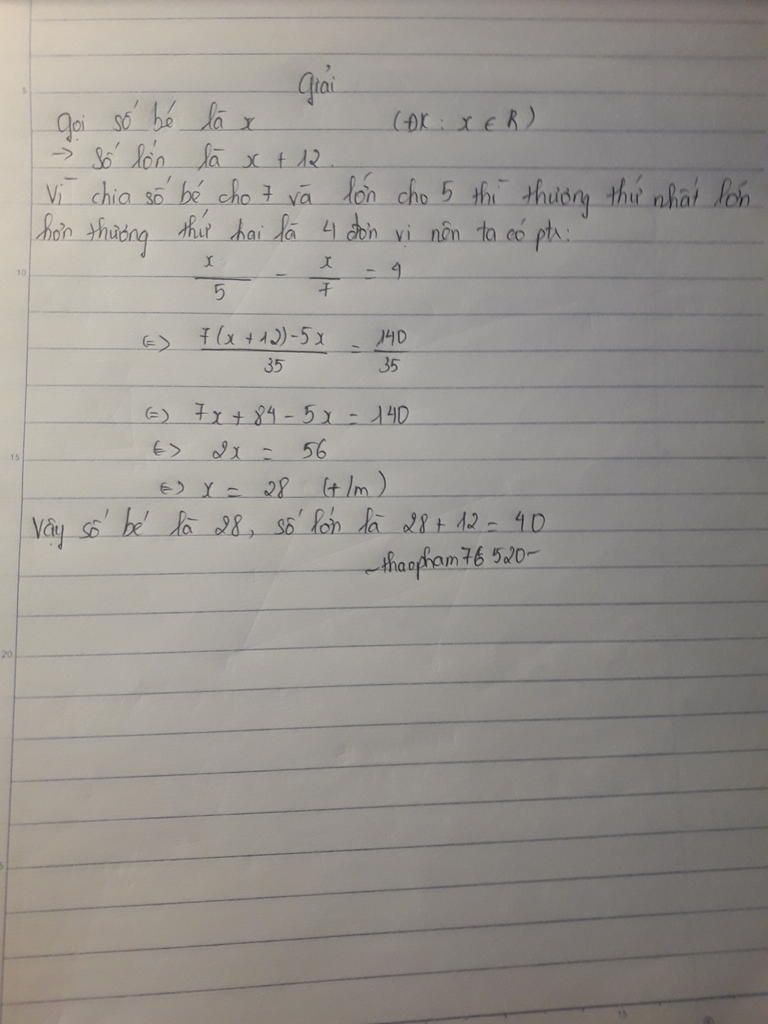 Giải
Gọi số bé là x (ĐK: x ∈ R)
→ Số lớn là x + 12.
Vì chia số bé cho 7 và lớn cho 5 thì thương thứ nhất lớn
hơn thương thứ hai là 4 đơn vị nên ta có pt:
x/5 - x/7 = 4
<=> (7(x + 12) - 5x)/35 = 140/35
<=> 7x + 84 - 5x = 140
<=> 2x = 56
<=> x = 28 (t/m)
Vậy số bé là 28, số lớn là 28 + 12 = 40
~thaopham76520~
5
10
15
20
15